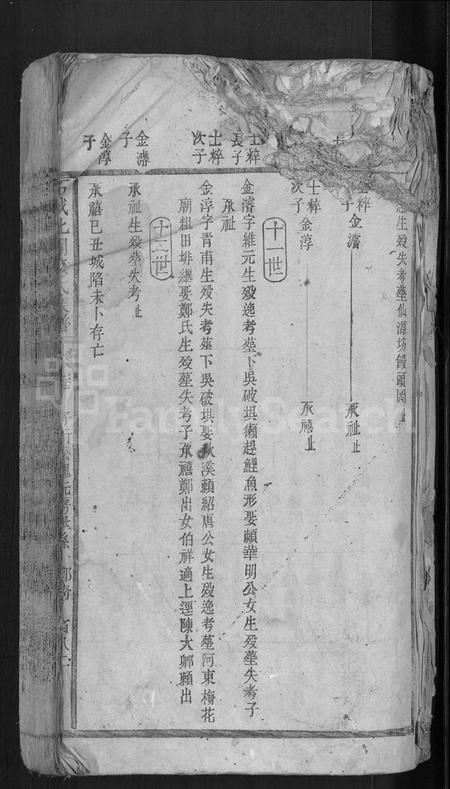 生歿失考塟仙源坊饅頭岡止
士粹
子
金濬
承祉止
士粹
次子
金淳
承禧止
十一世
士粹
長子
金濬字維元生歿逸考塟下吳破垻獺趕鯉魚形娶賴華明公女生歿塟失考子
承祉
士粹
次子
金淳字青甫生歿失考塟下吳破垻娶秋溪賴紹唐公女生歿逸考塟河東梅花
廟租田埤繼娶鄭氏生歿塟失考子承禧鄭出女伯祥適上逕陳大鄉賴出
十二世
金濬
子
承祉生歿塟失考止
金淳
子
承禧己丑城陷未卜存亡
FamilySearch